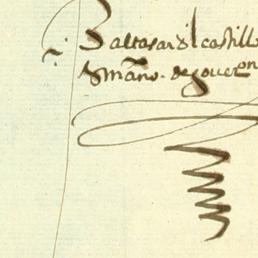 Baltasar dl castillo
esmāno. de gouer.on